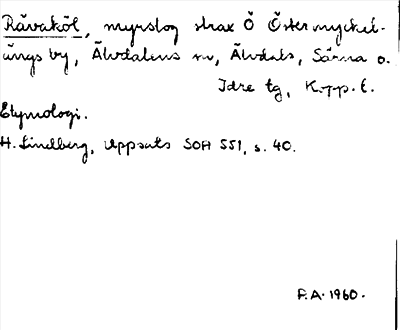 Råvaköl, myrslog strax Ö Östermyckel-
ängs by, Älvdalens sn, Älvdals, Särna o.
Idre tg, Kopp. l.
Etymologi.
H. Lindberg, Uppsats SOH 551, s. 40.
P.A. 1960.